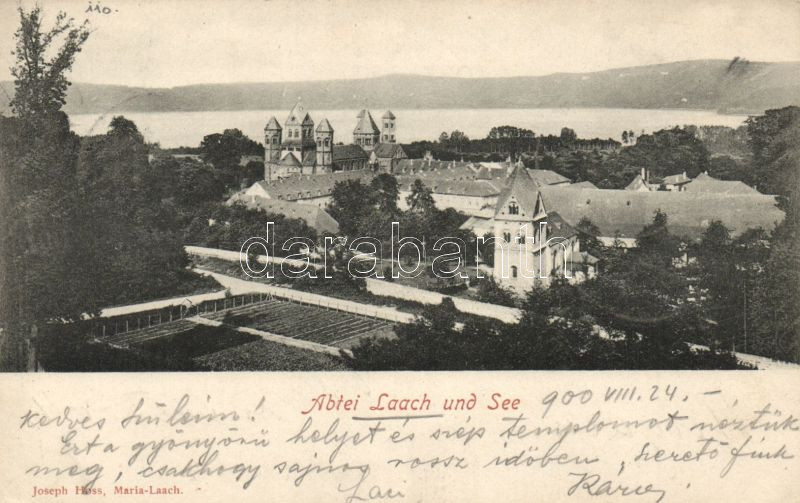 110.
darabanth
Abtei Laach und See 900 VIII. 24. –
kedves Szüleim!
Ezt a gyönyörű helyet és szép templomot néztük
meg, csakhogy sajnos rossz időben, szerető fiuk
Joseph Hoss, Maria-Laach.